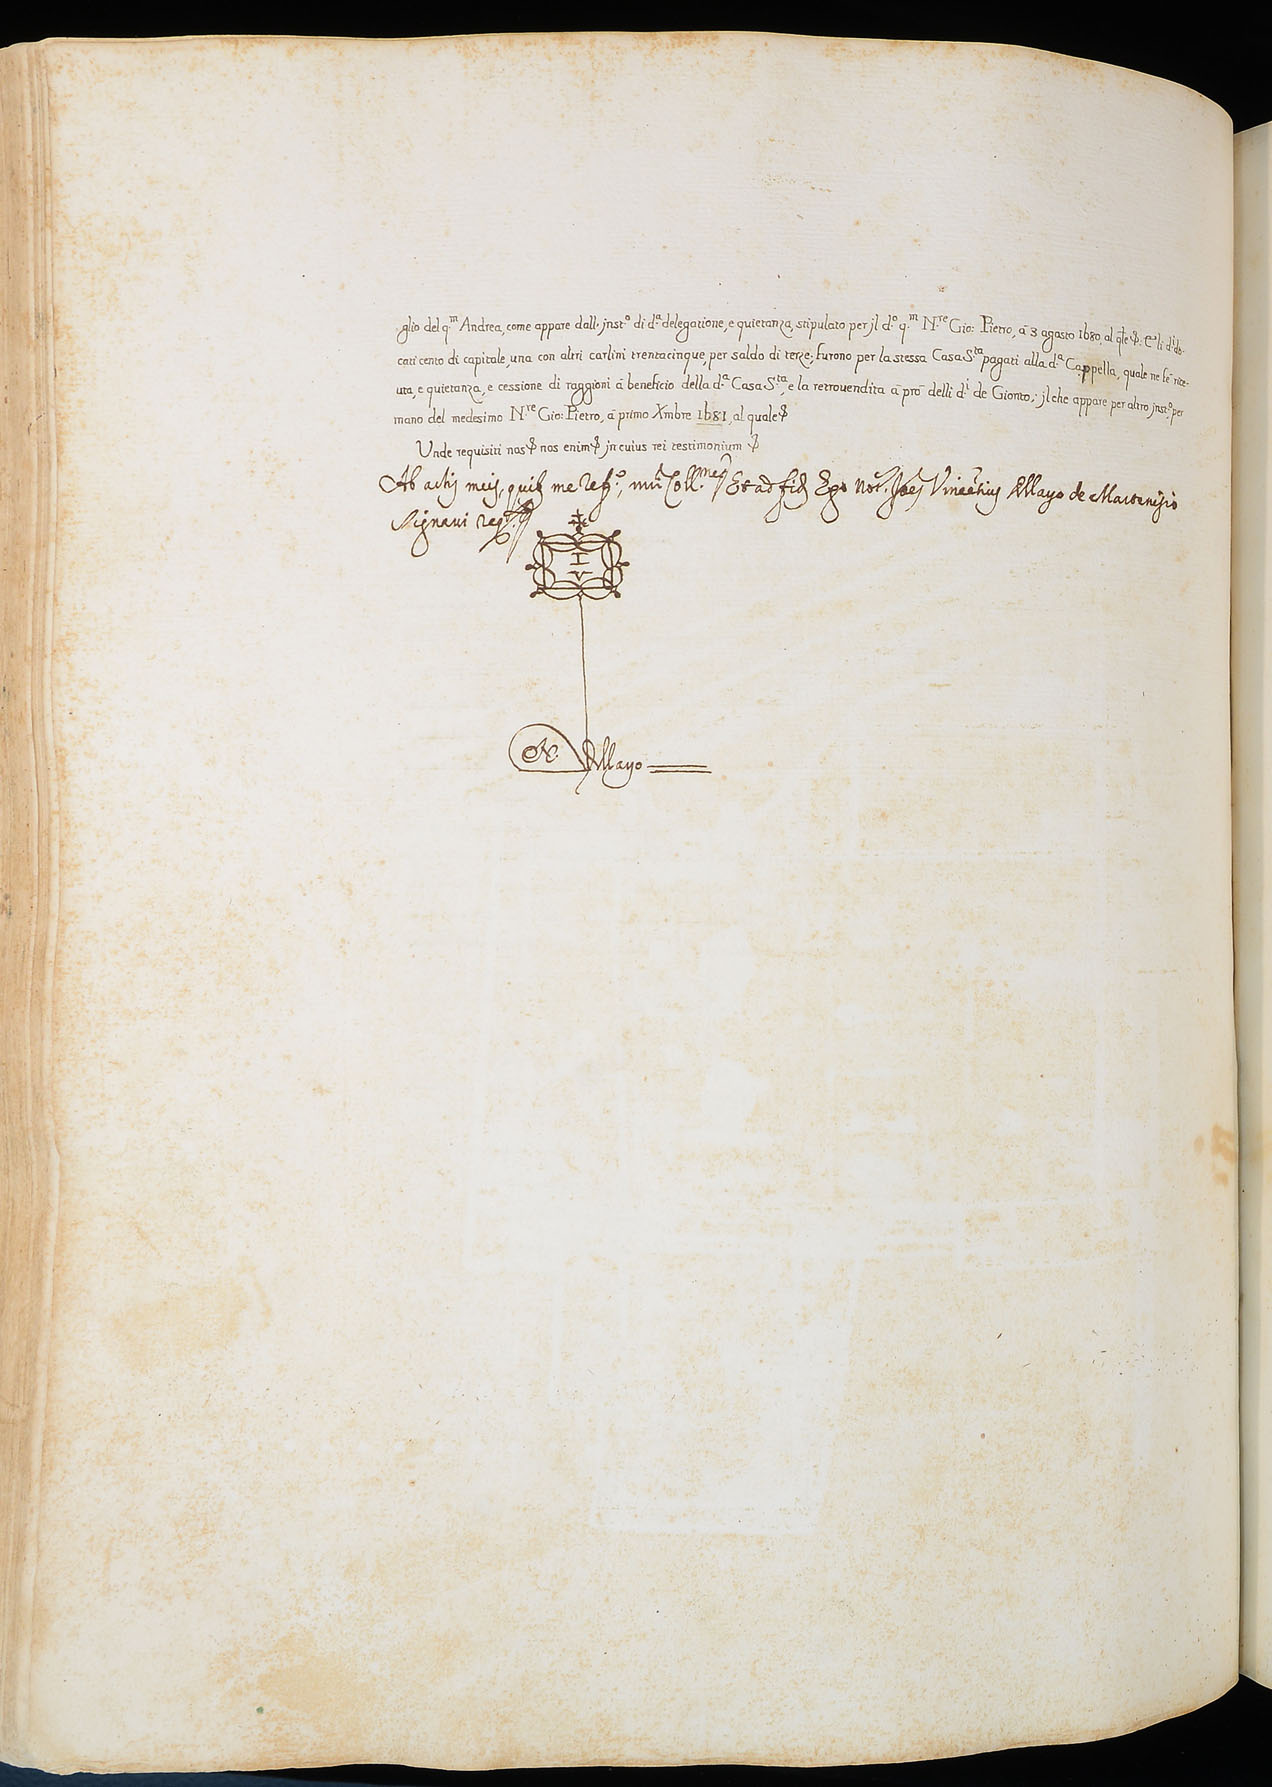 glio del q.^m Andrea, come appare dall' jnst.^o di d.^a delegatione, e quietanza, stipulato per jl d.^o q.^m N.^re Gio: Pietro, à 3 agosto 1680, al q̃le li d.^i do-
cati cento di capitale, una con altri carlini trentacinque, per saldo di terze, furono per la stessa Casa S.^ta pagati alla d.^a Cappella, quale ne fè rice-
uta, e quietanza, e cessione di raggioni à beneficio della d.^a Casa S.^ta, e la retrouendita à prò delli d.^i de Gionto, jl che appare per altro jnst.^o per
mano del medesimo N.^re Gio: Pietro, à primo Xmbre 1681, al quale
Unde requisiti nos nos enim jn cuius rei testimonium
Ab actis meis, quib me Coll.^ne Et ad fid Ego Not.^r Joes Vincẽtius Mayo de Martenisio
Signaui
I
V
N. Mayo